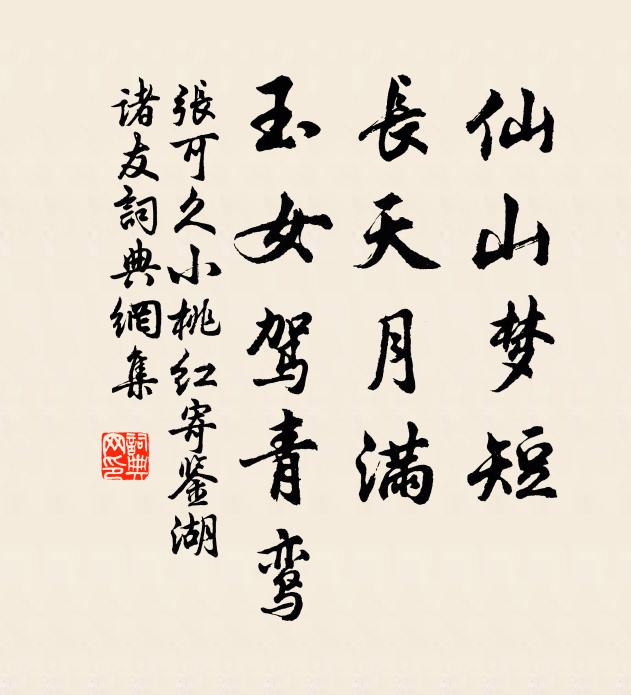 仙山梦短
長天月满
玉女駕青鸾
張可久小桃红寄鉴湖
诸友詞典網集
詞典網印